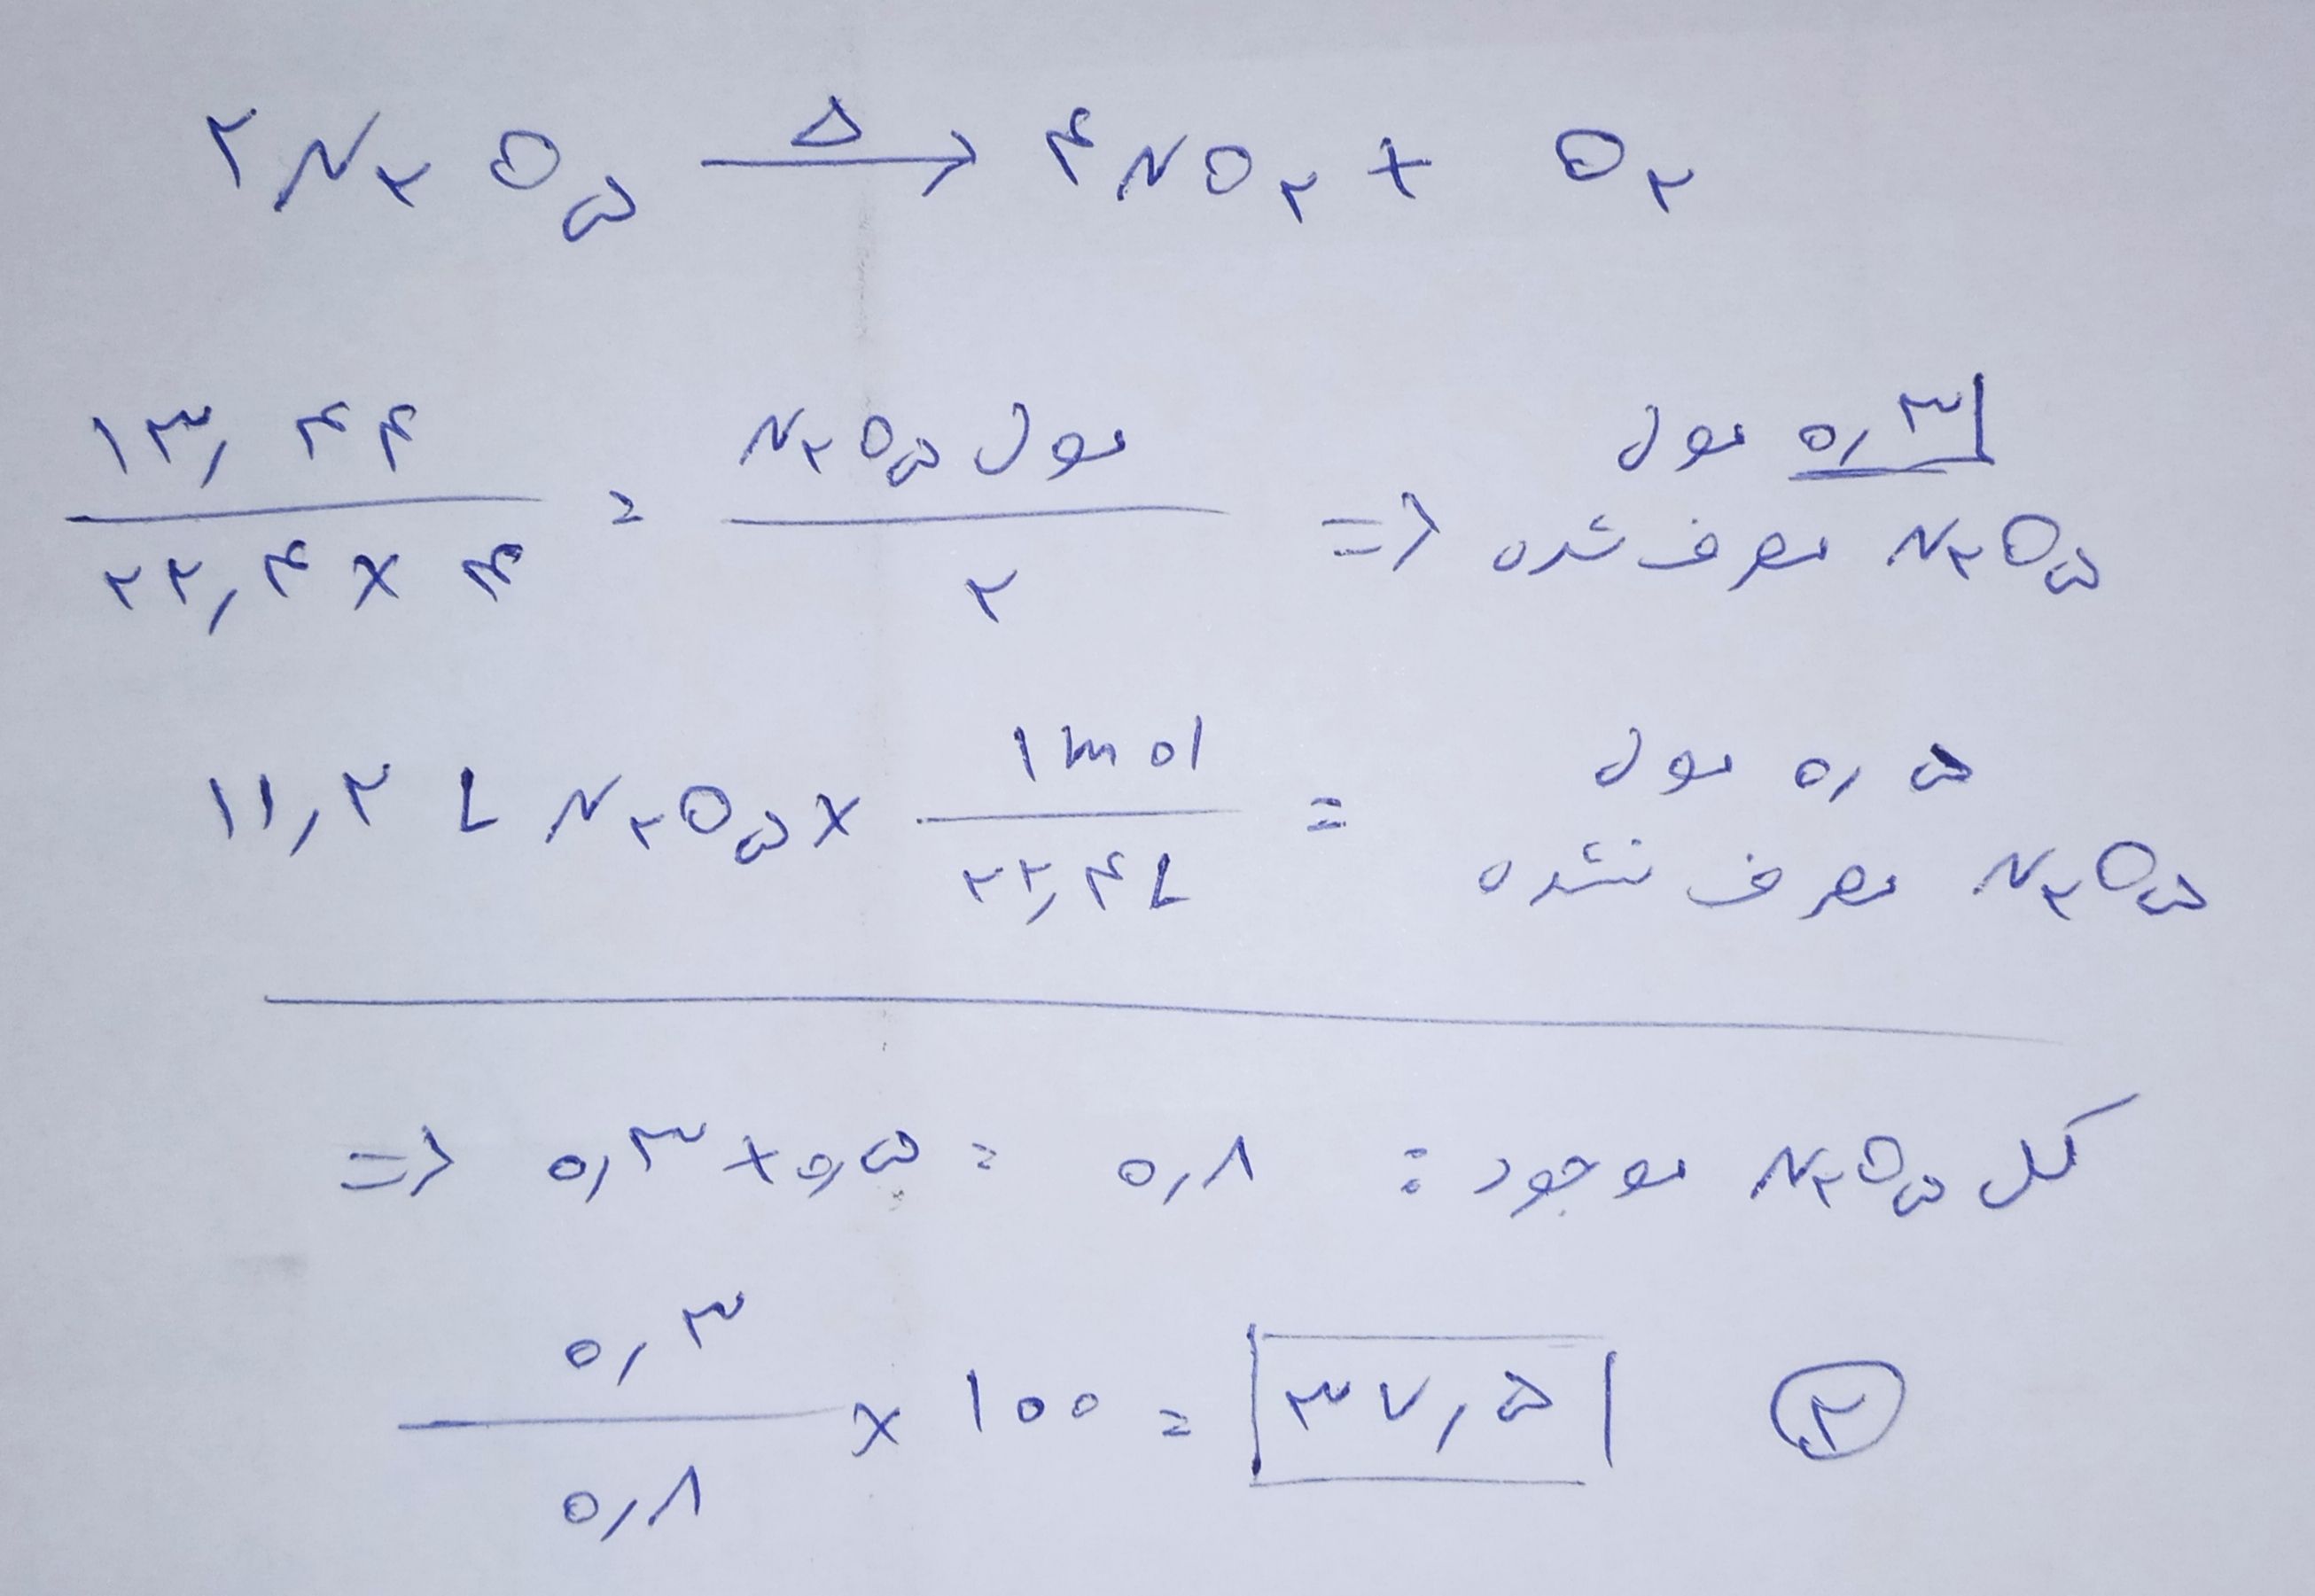 ۲N۲O۵ —Δ→ ۴NO۲ + O۲
۱۳٫۴۴ / ۲۲٫۴ × ۴ = مول N۲O۵ / ۲ => ۰٫۳ مول
N۲O۵ مصرف شده
۱۱٫۲ L N۲O۵ × ۱ mol / ۲۲٫۴ L = ۰٫۵ مول
N۲O۵ مصرف نشده
کل N۲O۵ موجود : ۰٫۸ = ۰٫۳ + ۰٫۵ =>
۰٫۳ / ۰٫۸ × ۱۰۰ = ۳۷٫۵ ۲